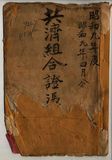 昭和九年度
昭和九年四月分
共濟組合證憑